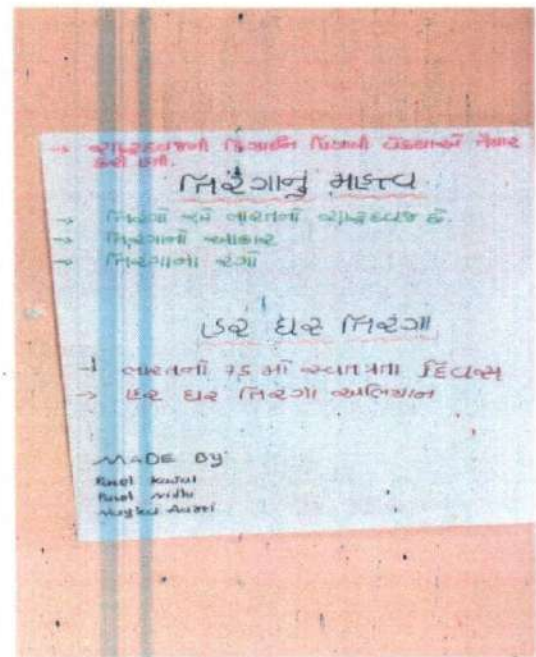 → રાષ્ટ્રધ્વજની ડિઝાઈન પિંગલી વેંકયાએ તૈયાર
કરી હતી.
તિરંગાનું મહત્ત્વ
→ તિરંગો એ ભારતનો રાષ્ટ્રધ્વજ છે.
→ તિરંગાનો આકાર
→ તિરંગાના રંગો
હર ઘર તિરંગા
→ ભારતનો ૭૬ મો સ્વાતંત્રતા દિવસ
→ હર ઘર તિરંગા અભિયાન
MADE By
Patel Kajal
Patel Nidhi